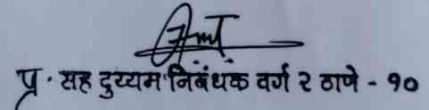 प्र. सह दुय्यम निबंधक वर्ग २ ठाणे - १०